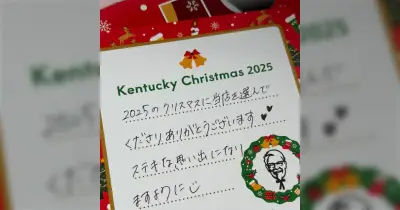 Kentucky Christmas 2025
2025のクリスマスに当店を選んで
くださりありがとうございます
ステキな思い出になり
ますように